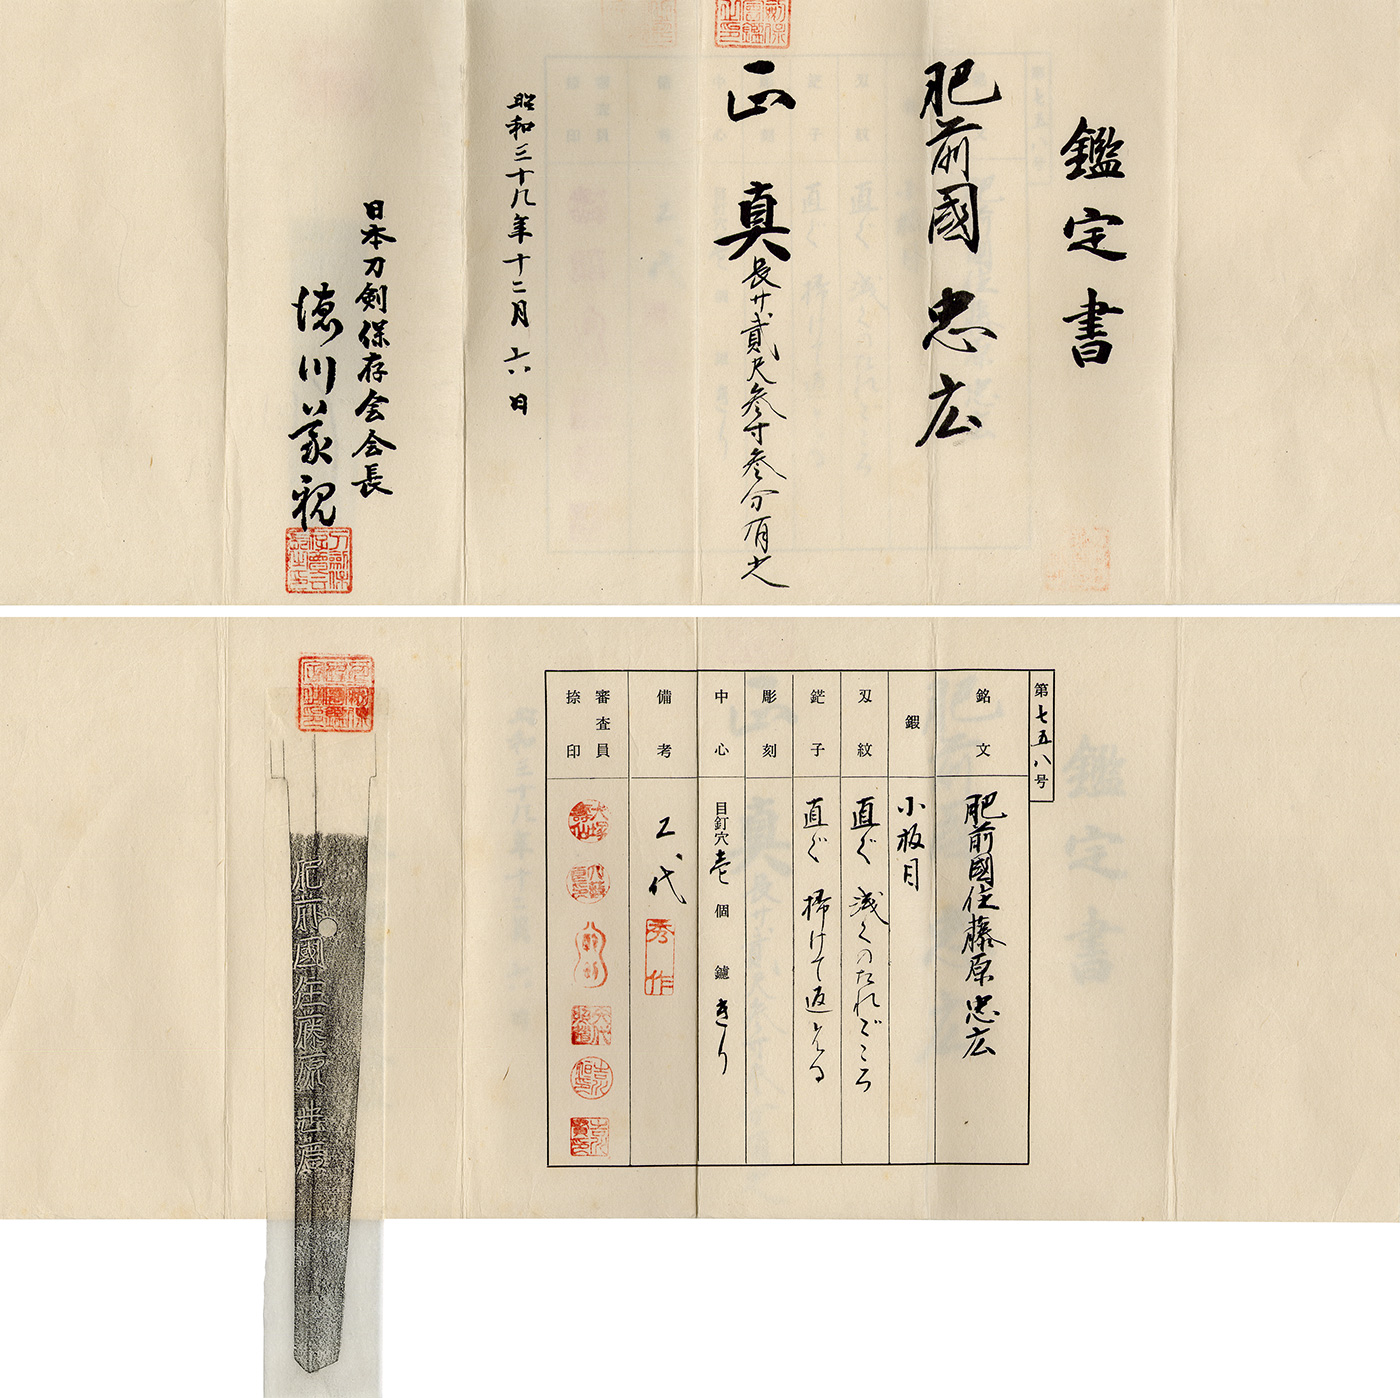 鑑定書
肥前國 忠広
正真
長廿貳尺参寸参分有之
昭和三十八年十二月六日
日本刀劍保存会会長
徳川義親
第七五八号
銘文
肥前國住藤原忠広
鍛
小板目
刄紋
直ぐ 浅くのたれごころ
鋩子
直ぐ 掃けて返る
彫刻
中心
目釘穴 壱 個 鑢 きり
備考
二代
秀作
審査員
捺印
肥前國住藤原忠廣